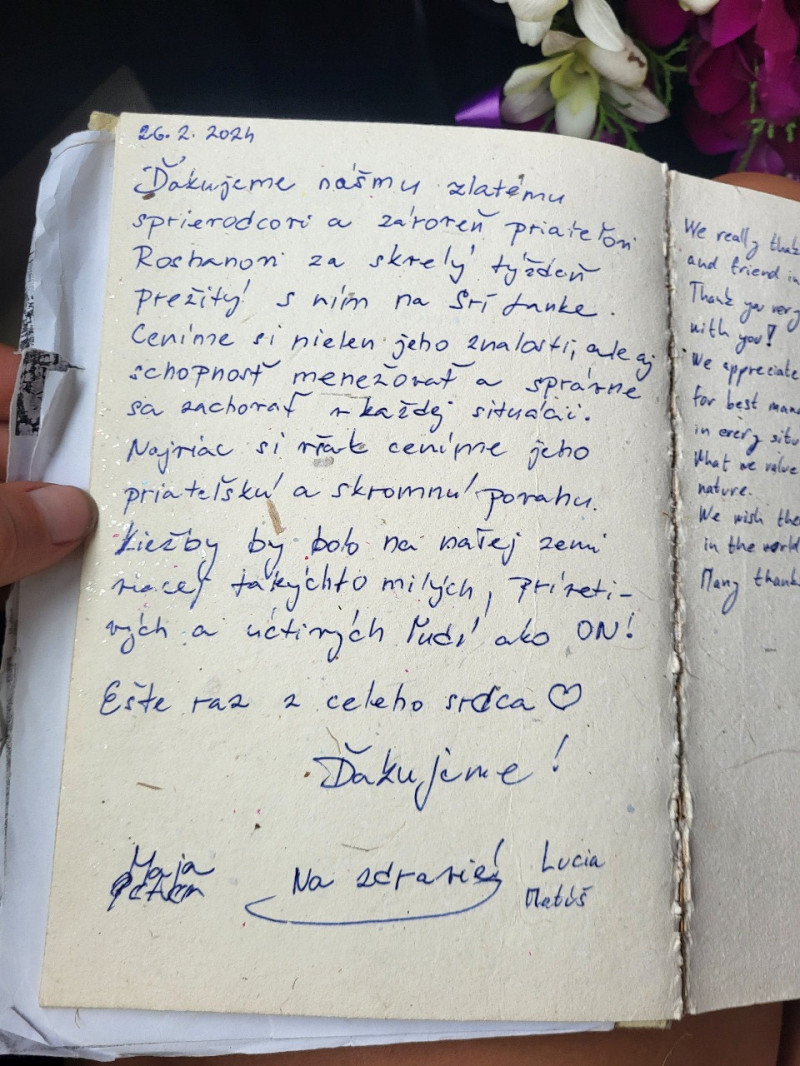 26. 2. 2024
Ďakujeme nášmu zlatému
sprievodcovi a zároveň priateľovi
Roshanovi za skvelý týždeň
prežitý s ním na Srí Lanke.
Ceníme si nielen jeho znalosti, ale aj
schopnosť menežovať a správne
sa zachovať v každej situácii.
Najviac si však ceníme jeho
priateľskú a skromnú povahu.
Kiežby by bolo na našej zemi
viacej takýchto milých, príveti-
vých a úctivých ľudí ako ON!
Ešte raz z celeho srdca ♡
Ďakujeme!
Maja
Na zdravie!
Lucia
Matúš
We really thank
and friend in
Thank you very
with you!
We appreciate
for best mana
in every situ
What we value
nature.
We wish the
in the world
Many thank